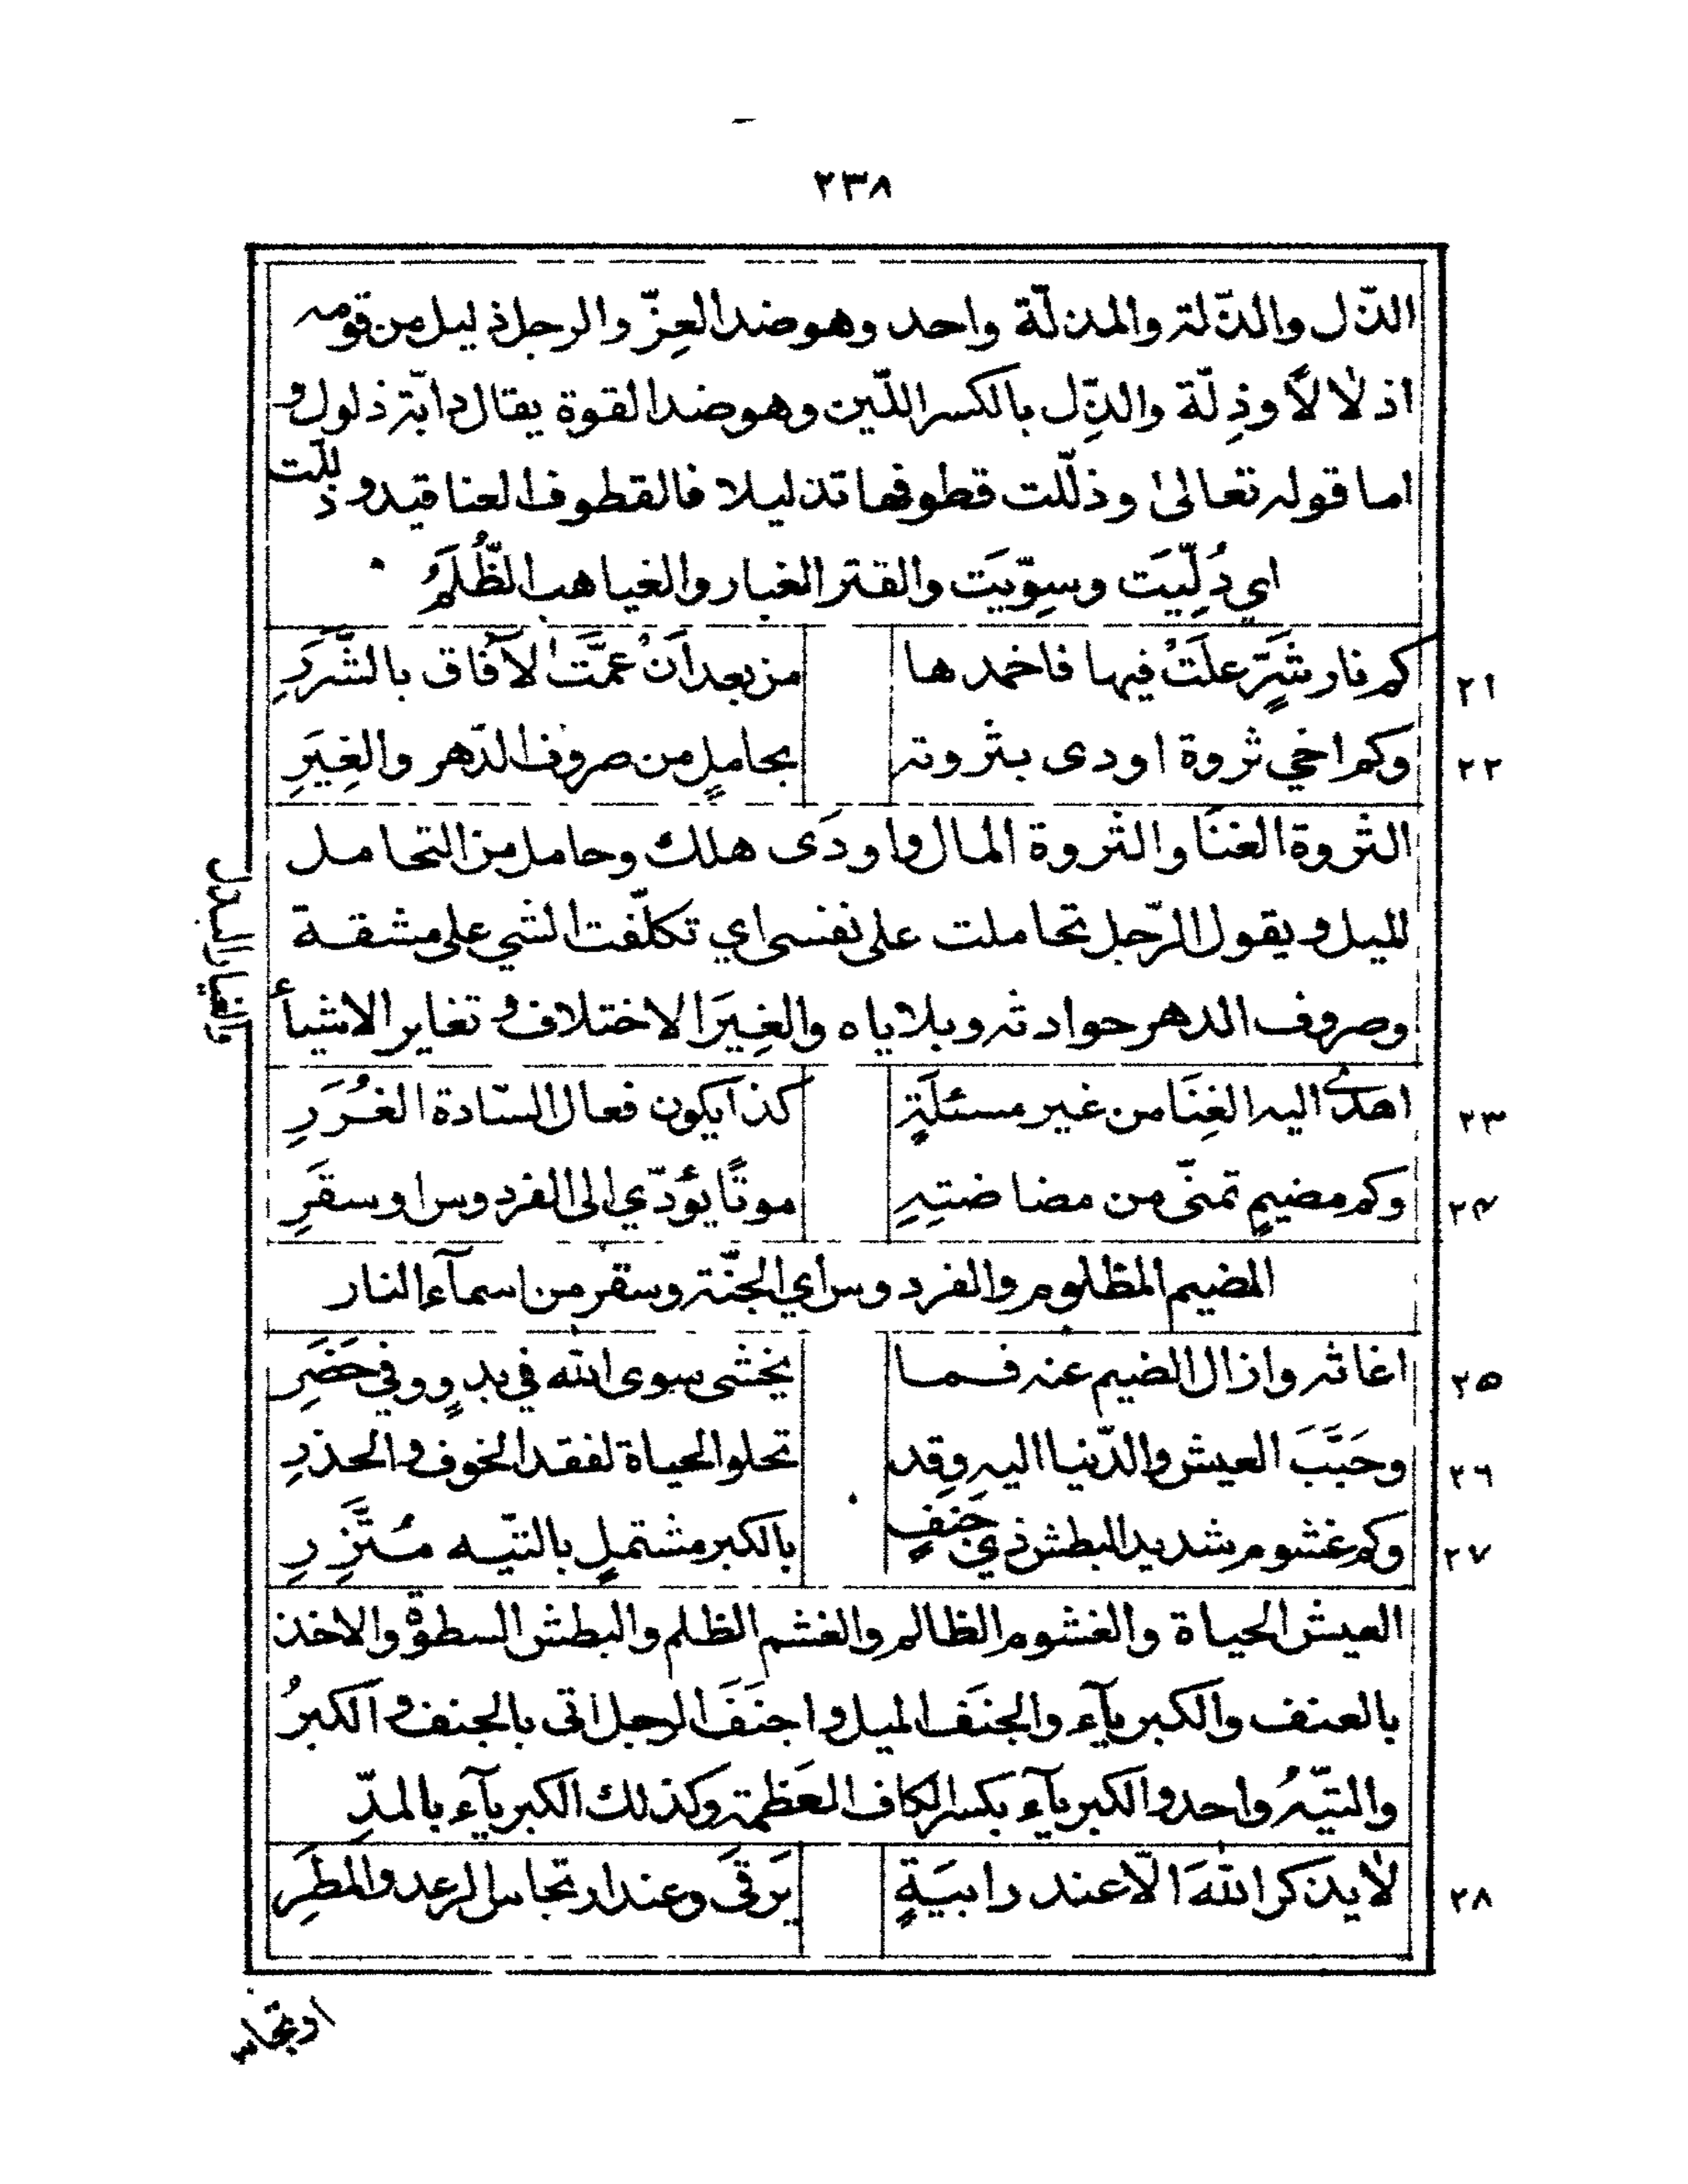 ٢٣٨
الذّل والذّلة والمذلّة واحد وهو ضد العِزّ والرجل ذليل من قومه
اذلالاً وذِلّة والذِّل بالكسر اللّين وهو ضد القوة يقال دابّة ذلول و
اما قوله تعالىٰ وذلّلت قطوفها تذليلا فالقطوف العناقيد و ذلّلت
اي دُلِّيَت وسوِّيَت والقتر الغبار والغياهب الظُّلَمُ
٢١ كم نار شرٍّ علَتْ فيها فاخمدها من بعد اَنْ عمَّت الآفاق بالشَّرَرِ
٢٢ وكم اخي ثروة اودى بثروته بحاملٍ من صروف الدّهر والغِيَرِ
الثروة الغنَا والثروة المال واودَى هلك وحامل من التحامل
للميل ويقول الرّجل تحاملت على نفسي اي تكلّفت الشي على مشقة
وصروف الدهر حوادثه وبلاياه والغِيَر الاختلاف و تغاير الاشيأ
والغيار البدل
٢٣ اهدىٰ اليه الغِنَا من غير مسئلَةٍ كذا يكون فعال السّادة الغُرَرِ
٢٤ وكم مضيمٍ تمنّى من مضاضتِهِ موتًا يؤدّي الى الفردوس او سقَرِ
المضيم المظلوم والفردوس اي الجنّة وسقر من اسمآء النار
٢٥ اغاثه وازال الضيم عنه فما يخشى سوى الله في بدوٍ وفي حَضَرِ
٢٦ وحَبَّبَ العيش والدّنيا اليه وقد تحلو الحياة لفقد الخوف والحذرِ
٢٧ وكم غشوم شديد البطش ذي جنفٍ بالكبر مشتملٍ بالتيّه مُتَّزِرِ
العيش الحياة والغشوم الظالم والغشم الظلم والبطش السطوة والاخذ
بالعنف والكبريآء والجنَف الميل واجنَفَ الرجل اتى بالجنف و الكبرُ
والتيّهُ واحد والكبريآء بكسر الكاف العَظمة وكذلك الكبريآء بالمدّ
٢٨ لا يذكر اللهَ الّا عند رابيَةٍ يَرقَى وعند ارتجاس الرعد والمطَرِ